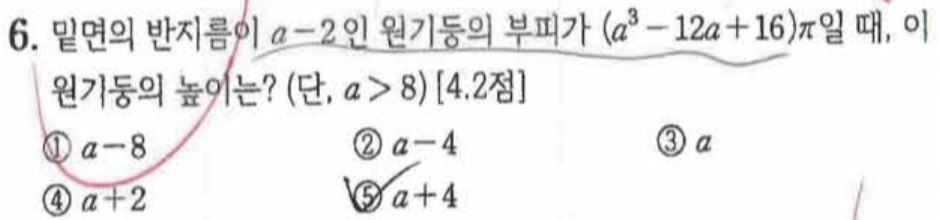 6. 밑면의 반지름이 a-2인 원기둥의 부피가 (a³-12a+16)π일 때, 이
원기둥의 높이는? (단, a>8) [4.2점]
① a-8 ② a-4 ③ a
④ a+2 ⑤ a+4